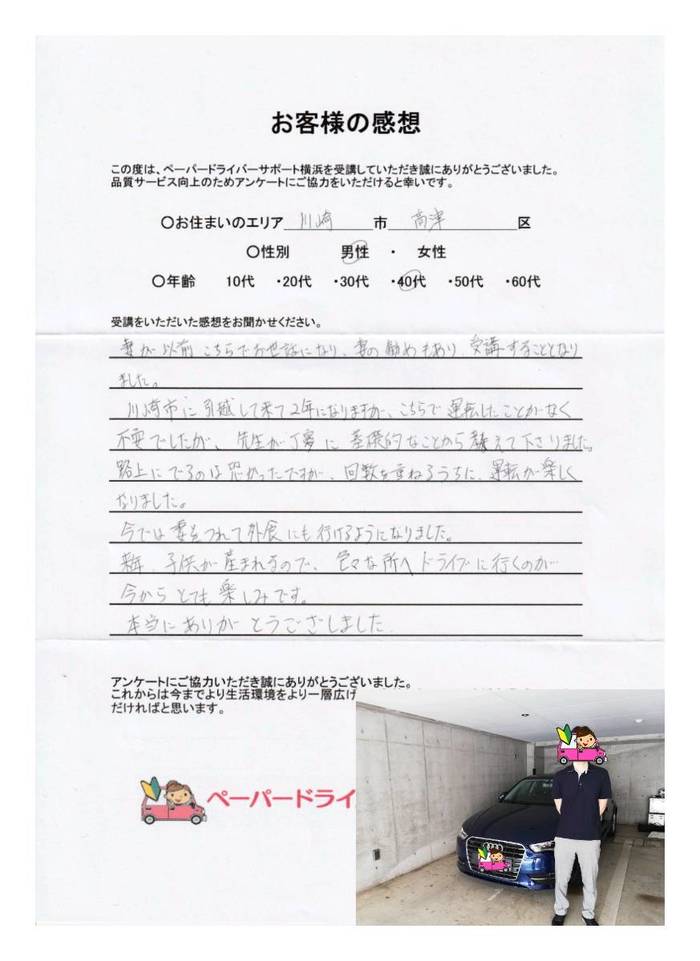 お客様の感想
この度は、ペーパードライバーサポート横浜を受講していただき誠にありがとうございました。
品質サービス向上のためアンケートにご協力をいただけると幸いです。
〇お住まいのエリア 川崎 市 高津 区
〇性別 男性 ・ 女性
〇年齢 10代 ・20代 ・30代 ・40代 ・50代 ・60代
受講をいただいた感想をお聞かせください。
妻が以前こちらでお世話になり、妻の勧めもあり受講することとなり
ました。
川崎市に引越して来て2年になりますが、こちらで運転したことがなく
不安でしたが、先生が丁寧に基礎的なことから教えて下さりました。
路上にでるのは恐かったですが、回数を重ねるうちに、運転が楽しく
なりました。
今では妻をつれて外食にも行けるようになりました。
来年、子供が産まれるので、色々な所へドライブに行くのが
今からとても楽しみです。
本当にありがとうございました
アンケートにご協力いただき誠にありがとうございました。
これからは今までより生活環境をより一層広げ
だければと思います。
ペーパードライ